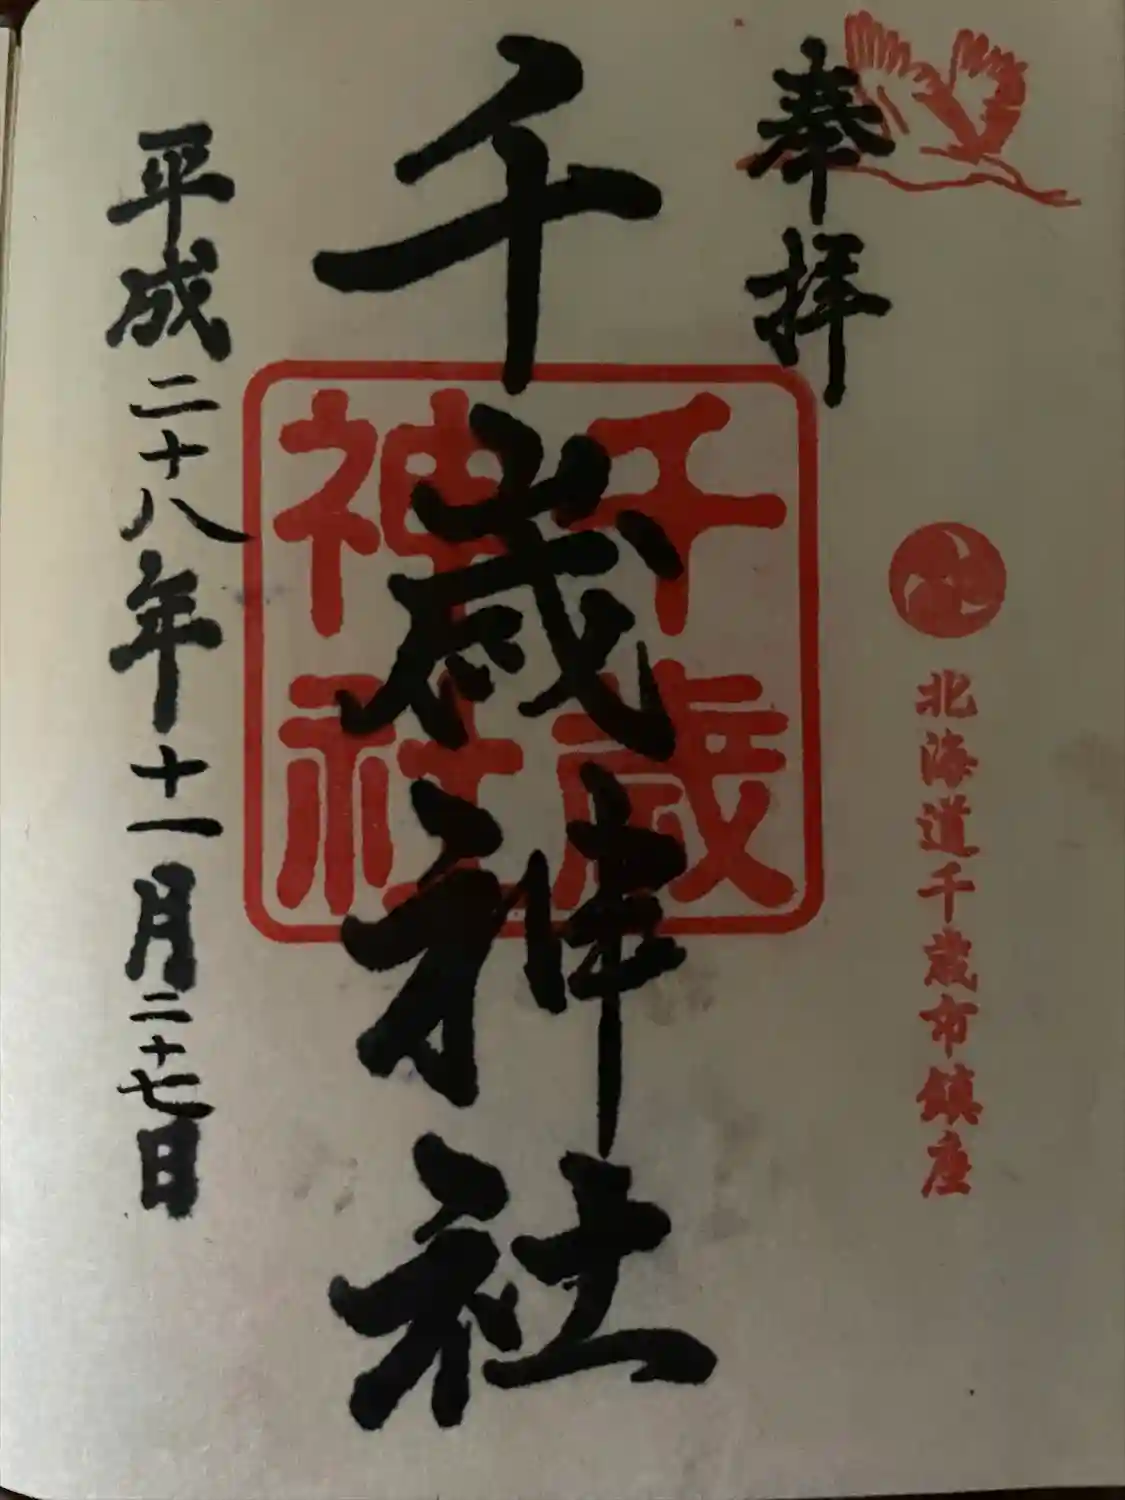 奉拝
北海道千歳市鎮座
千歳神社
千歳神社
平成二十八年十一月二十七日